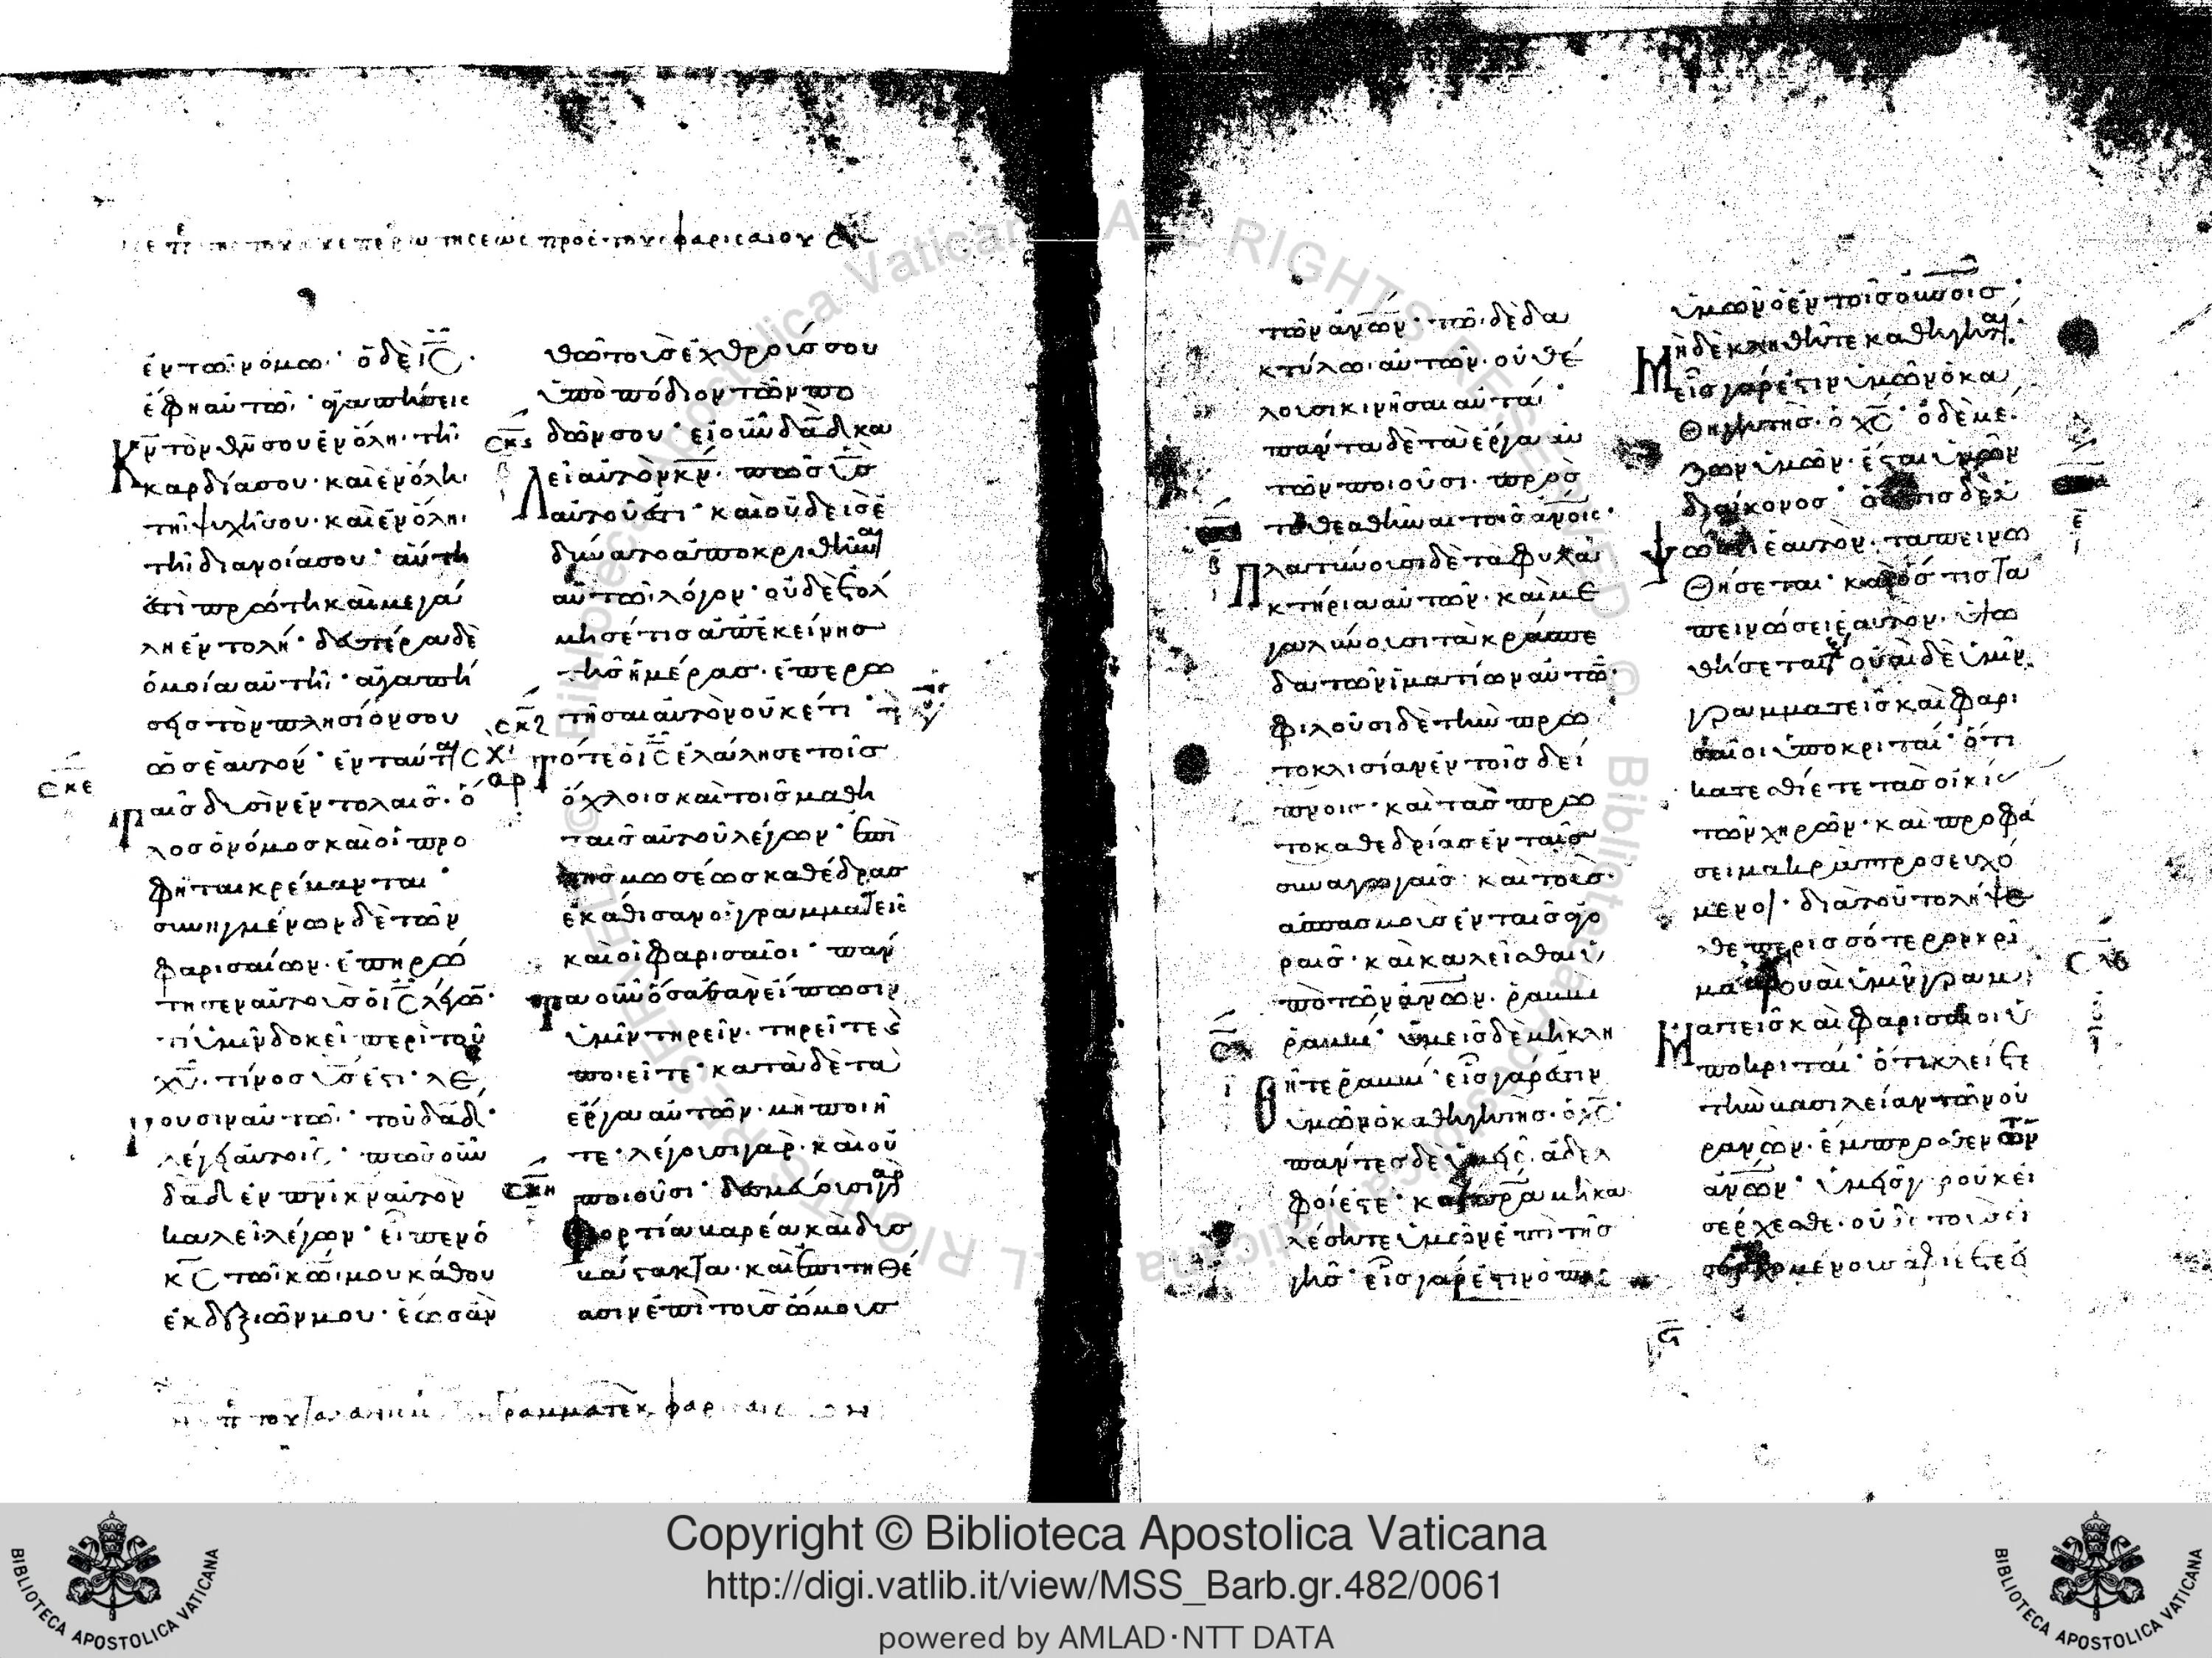 ἐν τῶ νόμω· ὁ δὲ ις·
ἔφη αὐτῶ· ἀγαπήσεις
κν τὸν θν σου ἐν ὅλη τῆ
καρδία σου· καὶ ἐν ὅλη
τῆ ψυχῆ σου· καὶ ἐν ὅλη
τῆ διανοία σου· αὕτη
ἐστὶ πρώτη καὶ μεγά
λη ἐντολή· δευτέρα δὲ
ὁμοία αὐτῆ· ἀγαπή
σης τὸν πλησίον σου
ὡς ἑαυτόν· ἐν ταύταις
ταῖς δυσὶν ἐντολαῖς· ὅ
λος ὁ νόμος καὶ οἱ προ
φῆται κρέμανται·
συνηγμένων δὲ τῶν
φαρισαίων· ἐπηρώ
τησεν αὐτοὺς ὁ ις λέγων·
τί ὑμῖν δοκεῖ περὶ τοῦ
χυ· τίνος υς ἐστι· λέ
γουσιν αὐτῶ· τοῦ δαδ·
λέγει αὐτοῖς· πῶς οὖν
δαδ ἐν πνι κν αὐτὸν
καλεῖ λέγων· εἶπεν ὁ
κς τῶ κω μου κάθου
ἐκ δεξιῶν μου· ἕως ἂν
θῶ τοὺς ἐχθρούς σου
ὑποπόδιον τῶν πο
δῶν σου· εἰ οὖν δαδ κα
λεῖ αὐτὸν κν· πῶς υς
αὐτοῦ ἐστι· καὶ οὐδεὶς ἐ
δύνατο ἀποκριθῆναι
αὐτῶ λόγον· οὐδὲ ἐτόλ
μησέ τις ἀπ' ἐκείνης
τῆς ἡμέρας· ἐπερω
τῆσαι αὐτὸν οὐκέτι·
τότε ὁ ις ἐλάλησε τοῖς
ὄχλοις καὶ τοῖς μαθη
ταῖς αὐτοῦ λέγων· ἐπὶ
τῆς μωσέως καθέδρας
ἐκάθισαν οἱ γραμματεῖς
καὶ οἱ φαρισαῖοι· πάν
τα οὖν ὅσα ἐὰν εἴπωσιν
ὑμῖν τηρεῖν· τηρεῖτε καὶ
ποιεῖτε· κατὰ δὲ τὰ
ἔργα αὐτῶν· μὴ ποιῆ
τε· λέγουσι γὰρ· καὶ οὐ
ποιοῦσι· δεσμεύουσι γὰρ
φορτία βαρέα καὶ δυσ
βάστακτα· καὶ ἐπιτιθέ
ασιν ἐπὶ τοὺς ὤμους
τῶν ανων· τῶ δὲ δα
κτύλω αὐτῶν· οὐ θέ
λουσι κινῆσαι αὐτά·
πάντα δὲ τὰ ἔργα αὐ
τῶν ποιοῦσι· πρὸς
τὸ θεαθῆναι τοῖς ανοις·
πλατύνουσι δὲ τὰ φυλα
κτήρια αὐτῶν· καὶ με
γαλύνουσι τὰ κράσπε
δα τῶν ἱματίων αὐτῶν·
φιλοῦσι δὲ τὴν πρω
τοκλισίαν ἐν τοῖς δεί
πνοις· καὶ τὰς πρω
τοκαθεδρίας ἐν ταῖς
συναγωγαῖς· καὶ τοὺς
ἀσπασμοὺς ἐν ταῖς ἀγο
ραῖς· καὶ καλεῖσθαι ὑ
πὸ τῶν ανων· ῥαββὶ
ῥαββί· ὑμεῖς δὲ μὴ κλη
θῆτε ῥαββί· εἷς γάρ ἐστιν
ὑμῶν ὁ καθηγητής· ὁ χς·
πάντες δὲ ὑμεῖς ἀδελ
φοί ἐστε· καὶ πρα μὴ κα
λέσητε ὑμῶν ἐπὶ τῆς
γῆς· εἷς γάρ ἐστιν ὁ πηρ
ὑμῶν ὁ ἐν τοῖς ουνοις·
μηδὲ κληθῆτε καθηγηταί·
εἷς γάρ ἐστιν ὑμῶν ὁ κα
θηγητής· ὁ χς· ὁ δὲ μεί
ζων ὑμῶν· ἔσται ὑμῶν
διάκονος· ὅστις δὲ
ὑψώσει ἑαυτόν· ταπεινω
θήσεται· καὶ ὅστις τα
πεινώσει ἑαυτόν· ὑψω
θήσεται· οὐαὶ δὲ ὑμῖν
γραμματεῖς καὶ φαρι
σαῖοι ὑποκριταί· ὅτι
κατεσθίετε τὰς οἰκίας
τῶν χηρῶν· καὶ προφά
σει μακρὰ προσευχό
μενοι· διὰ τοῦτο λήψε
σθε περισσότερον κρί
μα· οὐαὶ ὑμῖν γραμ
ματεῖς καὶ φαρισαῖοι ὑ
ποκριταί· ὅτι κλείετε
τὴν βασιλείαν τῶν οὐ
ρανῶν· ἔμπροσθεν τῶν
ανων· ὑμεῖς γὰρ οὐκ εἰ
σέρχεσθε· οὐδὲ τοὺς εἰ
σερχομένους ἀφίετε
Copyright © Biblioteca Apostolica Vaticana
http://digi.vatlib.it/view/MSS_Barb.gr.482/0061
powered by AMLAD·NTT DATA